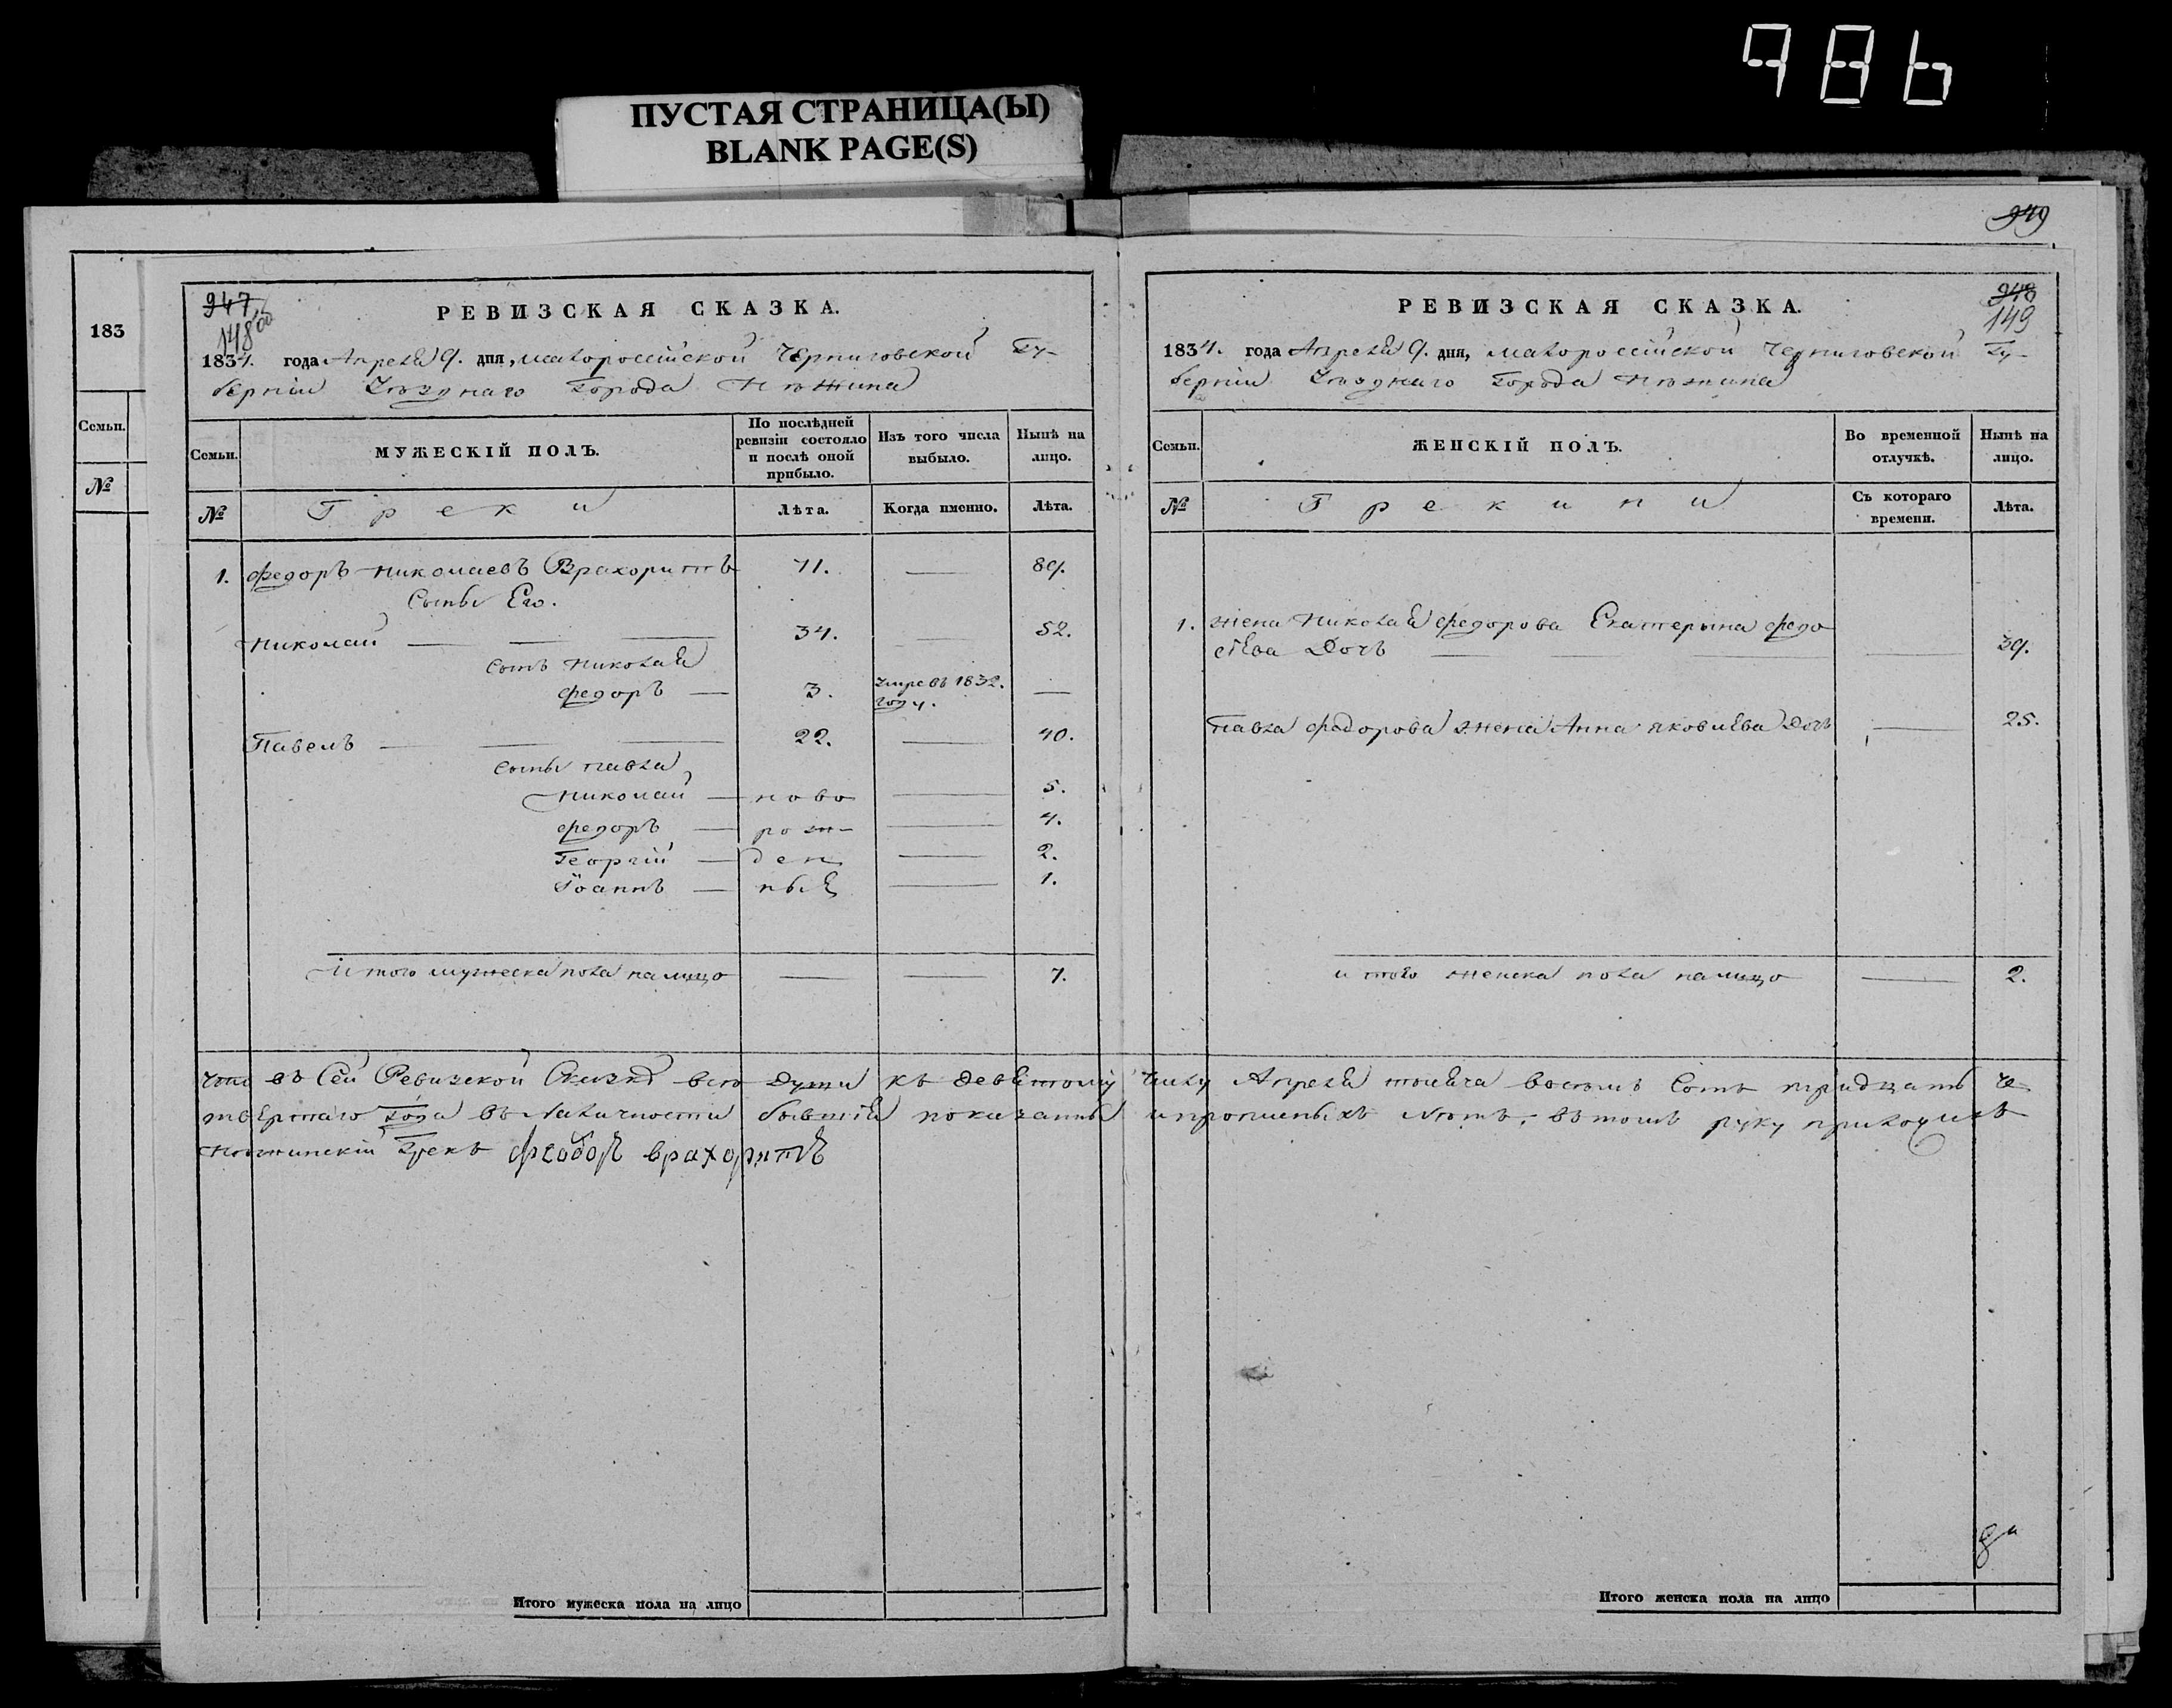 986
ПУСТАЯ СТРАНИЦА(Ы)
BLANK PAGE(S)
949
183
Семьи.
№
947
148 об
РЕВИЗСКАЯ СКАЗКА.
1834. года Апреля 9. дня, малоросссійской Черниговской Гу-
берніи Уѣзднаго Города Нѣжина
Семьи.
МУЖЕСКІЙ ПОЛЪ.
По послѣдней ревизіи состояло и послѣ оной прибыло.
Изъ того числа выбыло.
Нынѣ на лицо.
№
Греки
Лѣта.
Когда именно.
Лѣта.
1. Федоръ Николаевъ Врахоритъ 71. — 89.
Сыны Его.
Николай — 34. — 52.
Сынъ Николая
Федоръ — 3. Умре въ 1832. году. —
Павелъ — 22. — 40.
Сыны павла
Николай — ново — 5.
Федоръ — рож- — 4.
Георгій — ден — 2.
Іоаннъ — ныя — 1.
Итого мужеска пола налицо — — 7.
948
149
РЕВИЗСКАЯ СКАЗКА.
1834. года Апреля 9. дня, малороссійской Черниговской Гу-
берніи Уѣзднаго Города Нѣжина
Семьи.
ЖЕНСКІЙ ПОЛЪ.
Во временной отлучкѣ.
Нынѣ на лицо.
№
Грекини
Съ котораго времени.
Лѣта.
1. жена Николая Федорова Екатерына Федо
сѣева Дочь — 39.
павла Федорова жена Анна яковлева Дочь — 25.
итого женска пола налицо — 2.
что въ Сей Ревизской Сказкѣ всѣ Души къ девятому числу Апреля тысяча восемь Сотъ тридцать че-
твертаго Года въ Наличности бывшія показаны и прописныхъ Нѣтъ, в томъ руку приложилъ
Нѣжинскій Грекъ Феодоръ врахоритъ
Итого мужеска пола на лицо
Итого женска пола на лицо